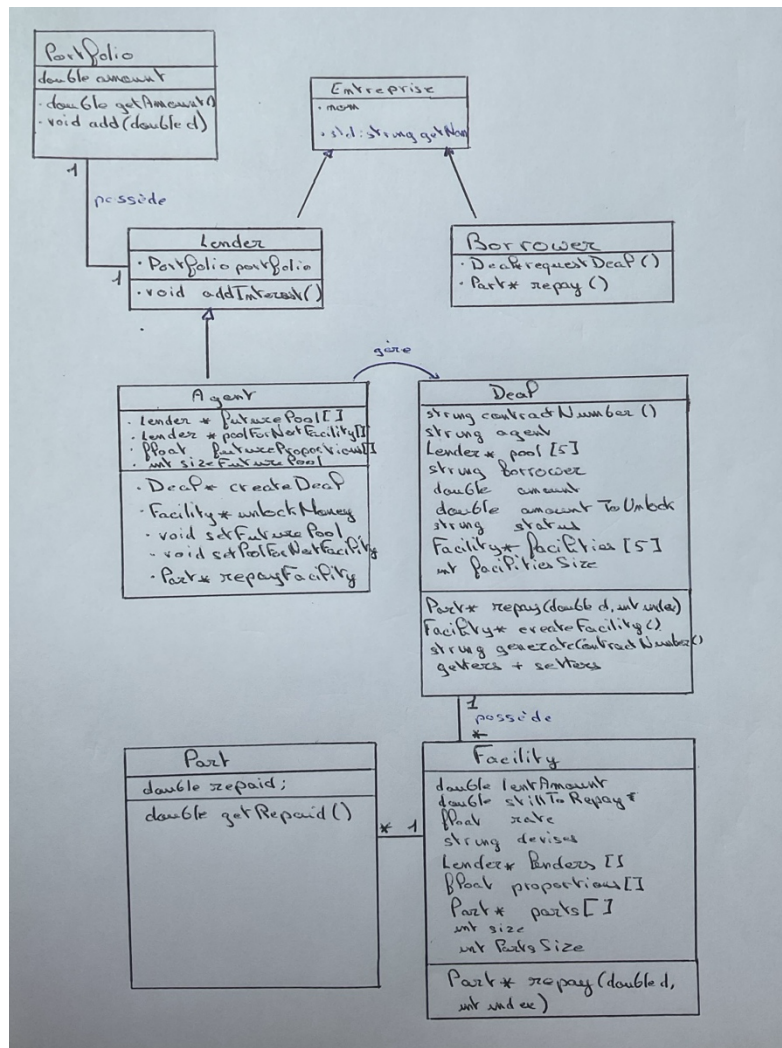 Portfolio
double amount
· double getAmount()
· void add(double d)
1
possède
1
Entreprise
· nom
· std::string getNom
Lender
· Portfolio portfolio
· void addInterest()
Borrower
· Deal* requestDeal()
· Part* repay()
gère
Agent
· Lender * futurePool[]
· Lender * poolForNextFacility[]
· float futureProportions[]
· int sizeFuturePool
· Deal* createDeal
· Facility* unlockMoney
· void setFuturePool
· void setPoolForNextFacility
· Part* repayFacility
Deal
string contractNumber()
string agent
Lender* pool [5]
string borrower
double amount
double amountToUnlock
string status
Facility* facilities [5]
int facilitiesSize
Part* repay(double d, int index)
Facility* createFacility()
string generateContractNumber()
getters + setters
1
possède
*
Part
double repaid;
double getRepaid()
* 1
Facility
double lentAmount
double stillToRepay
float rate
string devises
Lender* lenders []
float proportions[]
Part* parts[]
int size
int PartsSize
Part* repay(double d,
int index)